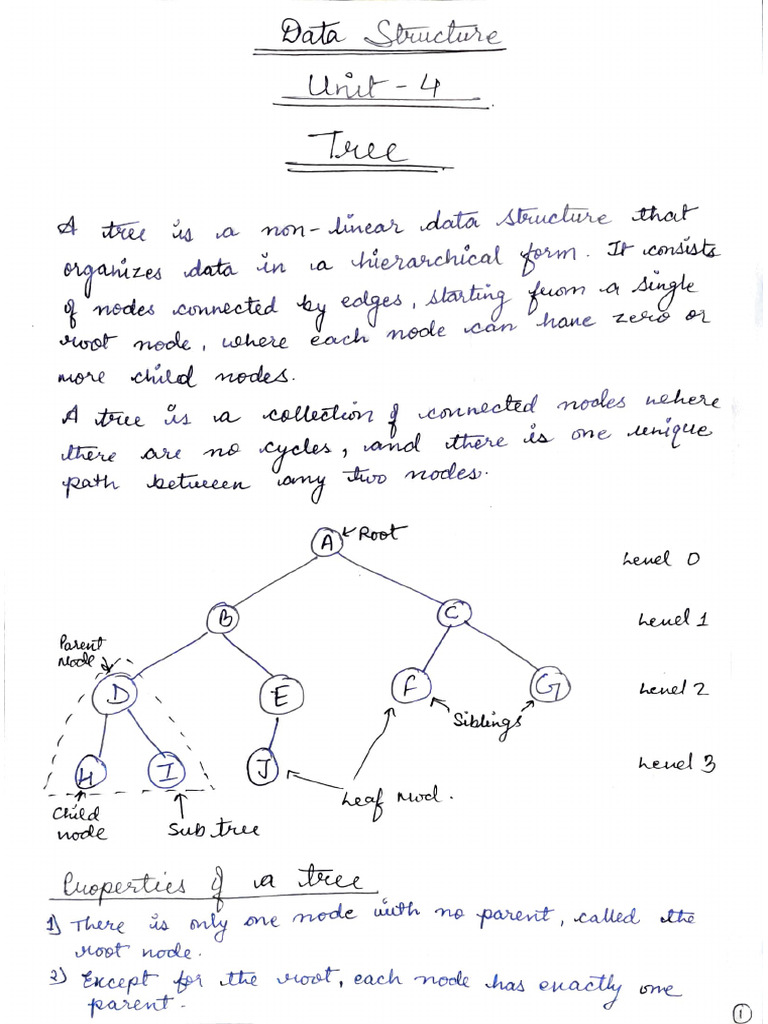 Data Structure
Unit - 4
Tree
A tree is a non-linear data structure that
organizes data in a hierarchical form. It consists
of nodes connected by edges, starting from a single
root node, where each node can have zero or
more child nodes.
A tree is a collection of connected nodes where
there are no cycles, and there is one unique
path between any two nodes.
A ← Root
Level 0
B C
Level 1
Parent
Node
D E F G
Level 2
Siblings
H I J
Level 3
Leaf Nod.
Child
node
Sub tree
Properties of a tree
1) There is only one node with no parent, called the
root node.
2) Except for the root, each node has exactly one
parent.
1